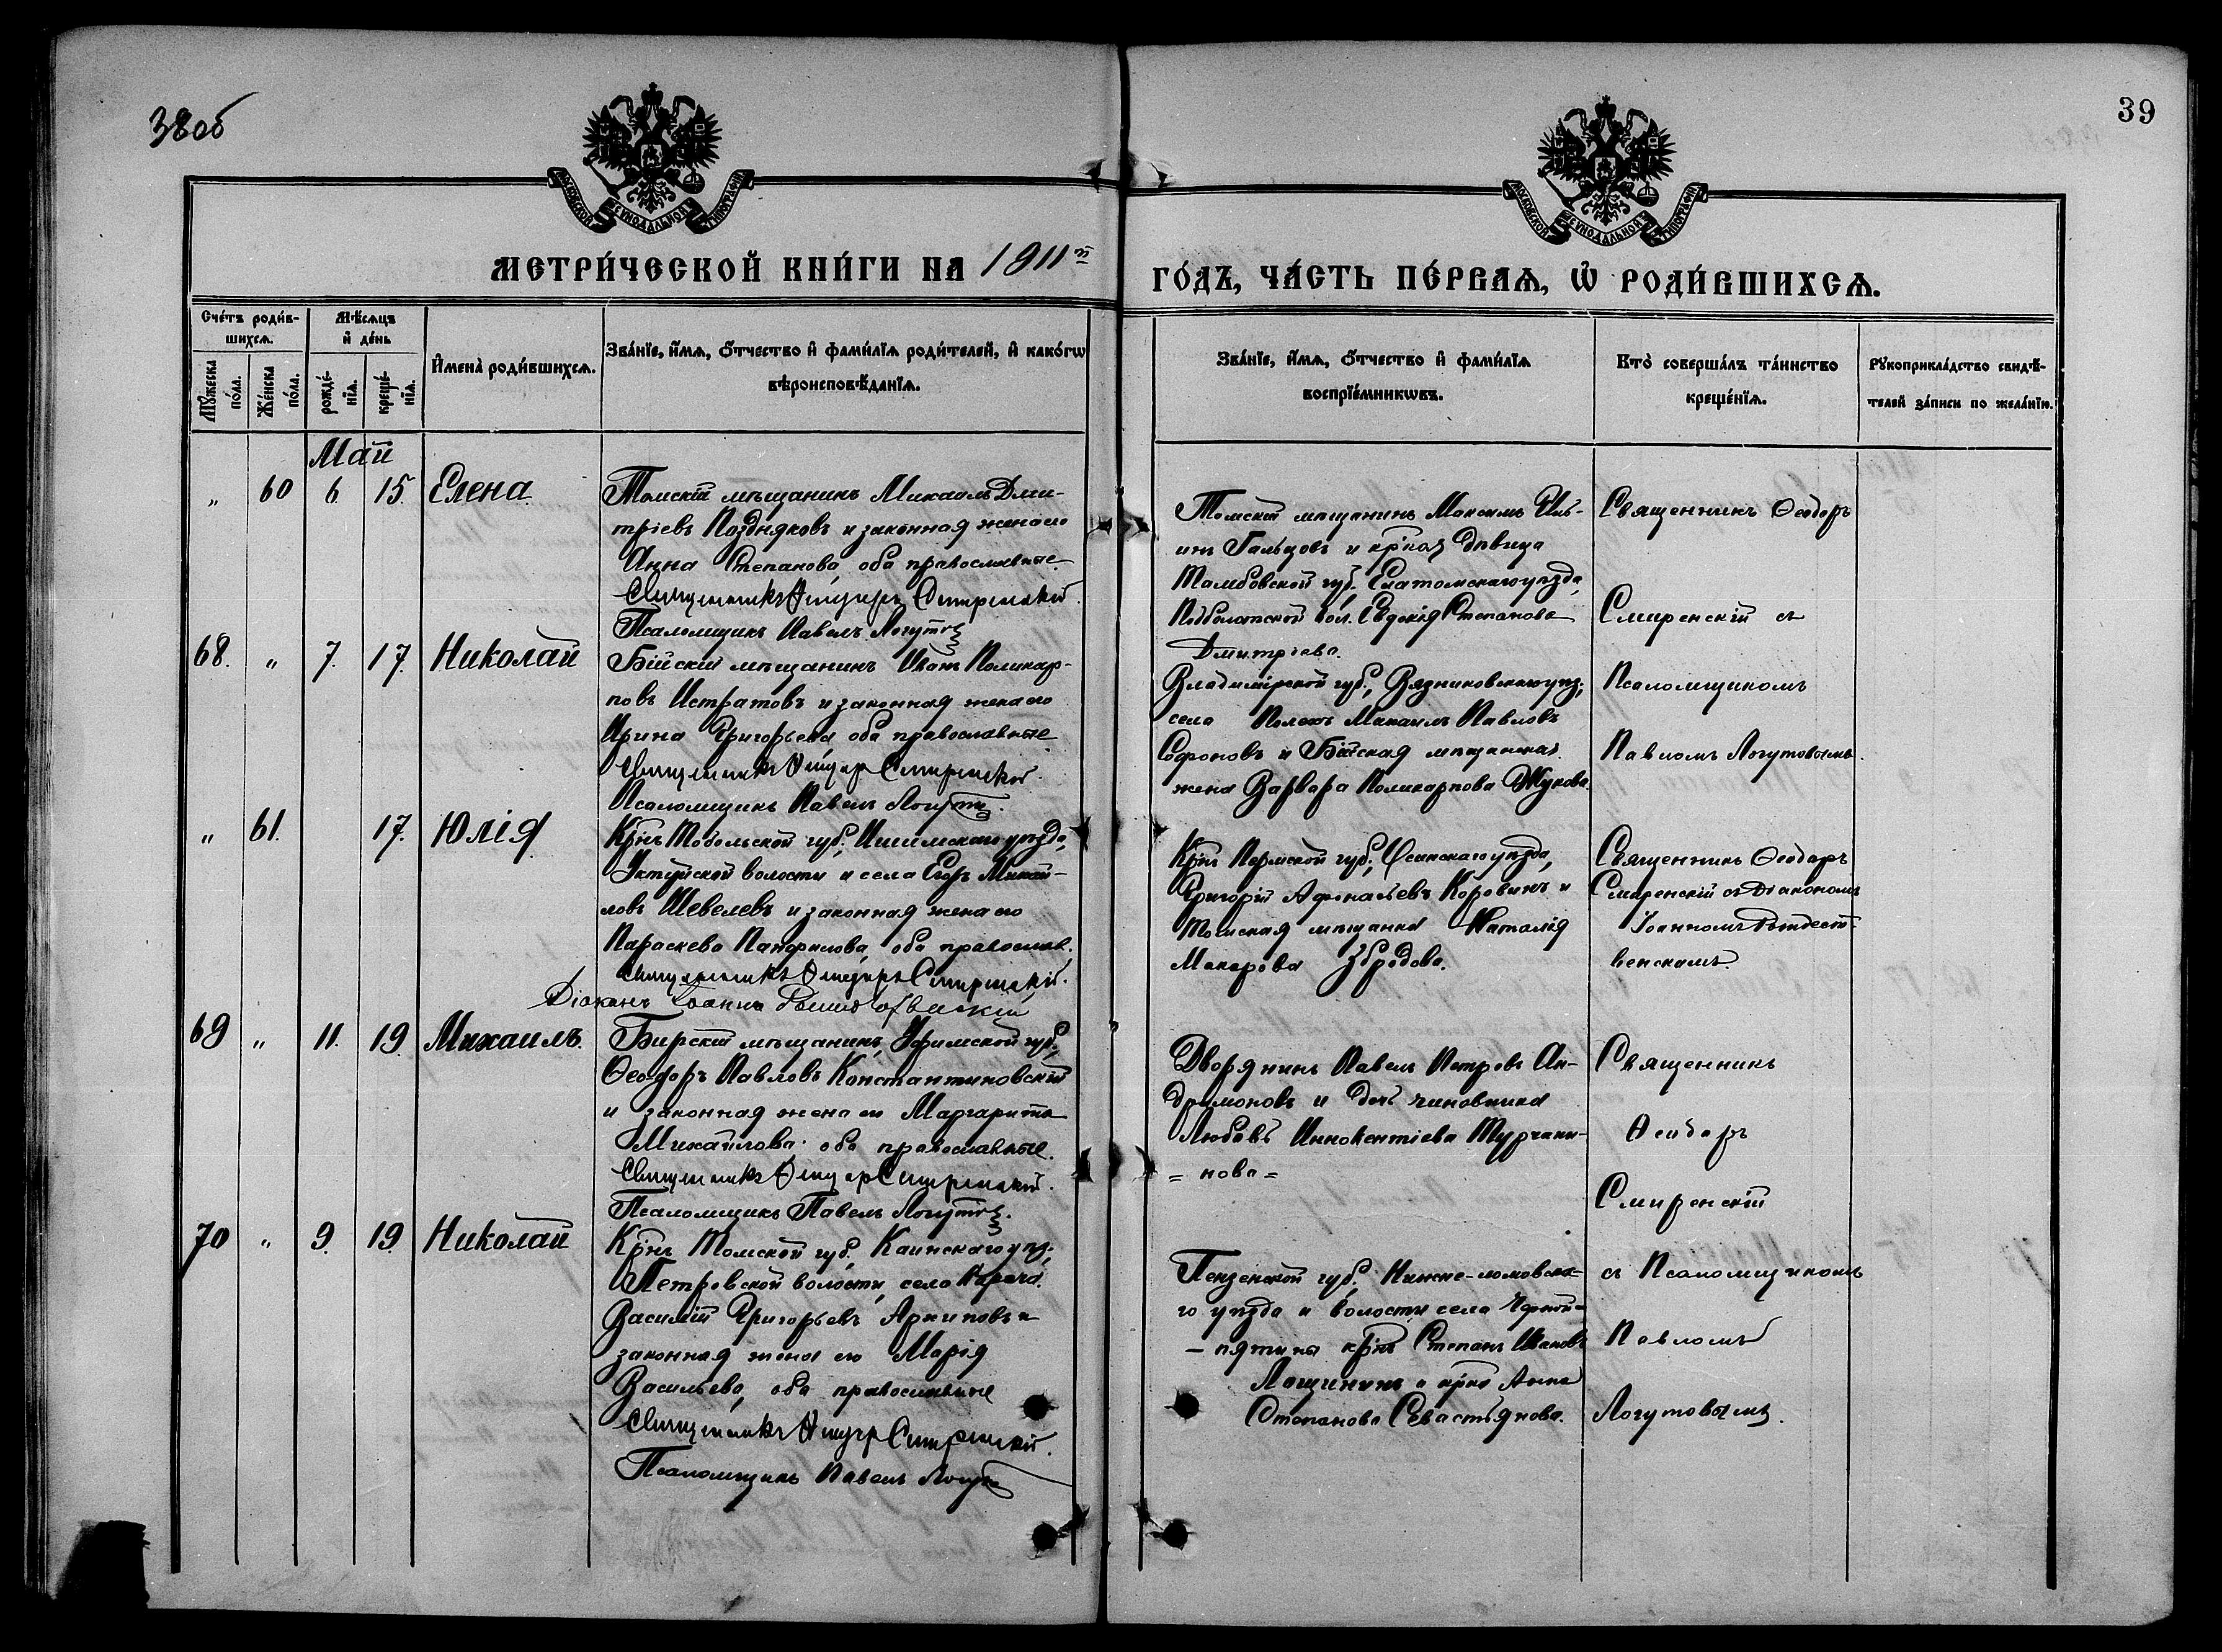 38об
39
МОСКОВСКОЙ СѴНОДАЛЬНОЙ ТИПОГРАФІИ
МОСКОВСКОЙ СѴНОДАЛЬНОЙ ТИПОГРАФІИ
МЕТРИ́ЧЕСКОЙ КНИ́ГИ НА 1911й
ГО́ДЪ, ЧА́СТЬ ПЕ́РВАѦ, Ѽ РОДИ́ВШИХСѦ.
Сче́тъ роди́в-
шихсѧ.
Мꙋ́жеска по́ла.
Же́нска по́ла.
Мѣ́сѧцъ
и҆ де́нь
рожде́-
нїѧ.
креще́-
нїѧ.
И҆мена̀ роди́вшихсѧ.
Зва́нїе, и҆́мѧ, ѻ҆́тчество и҆ фами́лїѧ роди́телей, и҆ како́гѡ
вѣроисповѣ́данїѧ.
Зва́нїе, и҆́мѧ, ѻ҆́тчество и҆ фами́лїѧ
воспрїе́мникѡвъ.
Кто̀ соверша́лъ та́инство
креще́нїѧ.
Рꙋкоприкла́дство свидѣ́-
телей за́писи по жела́нїю.
Май
„ 60 6 15. Елена
Томскій мѣщанинъ Михаилъ Дми-
тріевъ Поздняковъ и законная жена его
Анна Степанова, оба православные.
Священникъ Ѳеодоръ Смиренскій.
Псаломщикъ Павелъ Логутов
Томскій мѣщанинъ Максимъ Иль-
инъ Гальцовъ и кр-ная дѣвица
Тамбовской губ., Елатомскаго уѣзда,
вол. Евдокія Степанова
Дмитріева.
Священникъ Ѳеодоръ
Смиренскій съ
68. „ 7. 17. Николай
Бійскій мѣщанинъ Иванъ Поликар-
повъ Истратовъ и законная жена его
Ирина Григорьева оба православные
Священникъ Ѳеодоръ Смиренскій.
Псаломщикъ Павелъ Логутов.
Владимірской губ., Вязниковскаго уѣз.,
села Михаилъ Павловъ
Софоновъ и Бійская мѣщанская
жена Варвара Поликарпова Жукова.
Псаломщикомъ
Павломъ Логутовымъ.
„ 61. 17. Юлія
Кр-нъ Тобольской губ., Ишимскаго уѣзда,
Уктузской волости и села Егоръ Михай-
ловъ Шевелевъ и законная жена его
Параскева Панфилова, оба православ.
Священникъ Ѳеодоръ Смиренскій.
Діаконъ Іоаннъ Рождественскій
Кр-нъ Пермской губ., Осинскаго уѣзда,
Григорій Афонасьевъ Коровинъ и
Томская мѣщанка Наталія
Макарова Збродова.
Священникъ Ѳеодоръ
Смиренскій съ Діакономъ
Іоанномъ Рождест-
венскимъ.
69 „ 11. 19. Михаилъ.
Бирскій мѣщанинъ, Уфимской губ.,
Ѳеодоръ Павловъ Константиновскій
и законная жена его Маргарита
Михайлова, оба православные.
Священникъ Ѳеодоръ Смиренскій.
Псаломщикъ Павелъ Логутов.
Дворянинъ Павелъ Петровъ Ан-
дримоновъ и дочь чиновника
Любовь Иннокентіева Турчани-
= нова =
Священникъ
Ѳеодоръ
Смиренскій
70 „ 9. 19. Николай
Кр-нъ Томской губ., Каинскаго уѣз.,
Петровской волости, села
Василій Григорьевъ Архиповъ и
законная жена его Марія
Васильева, оба православные
Священникъ Ѳеодоръ Смиренскій.
Псаломщикъ Павелъ Логутов
Пензенской губ., Нижне-ломовска-
го уѣзда и волости, села Черной-
– пятины кр-нъ Степанъ Ивановъ
Лощининъ и кр-ка Анна
Степанова Севастьянова.
съ Псаломщикомъ
Павломъ
Логутовымъ.